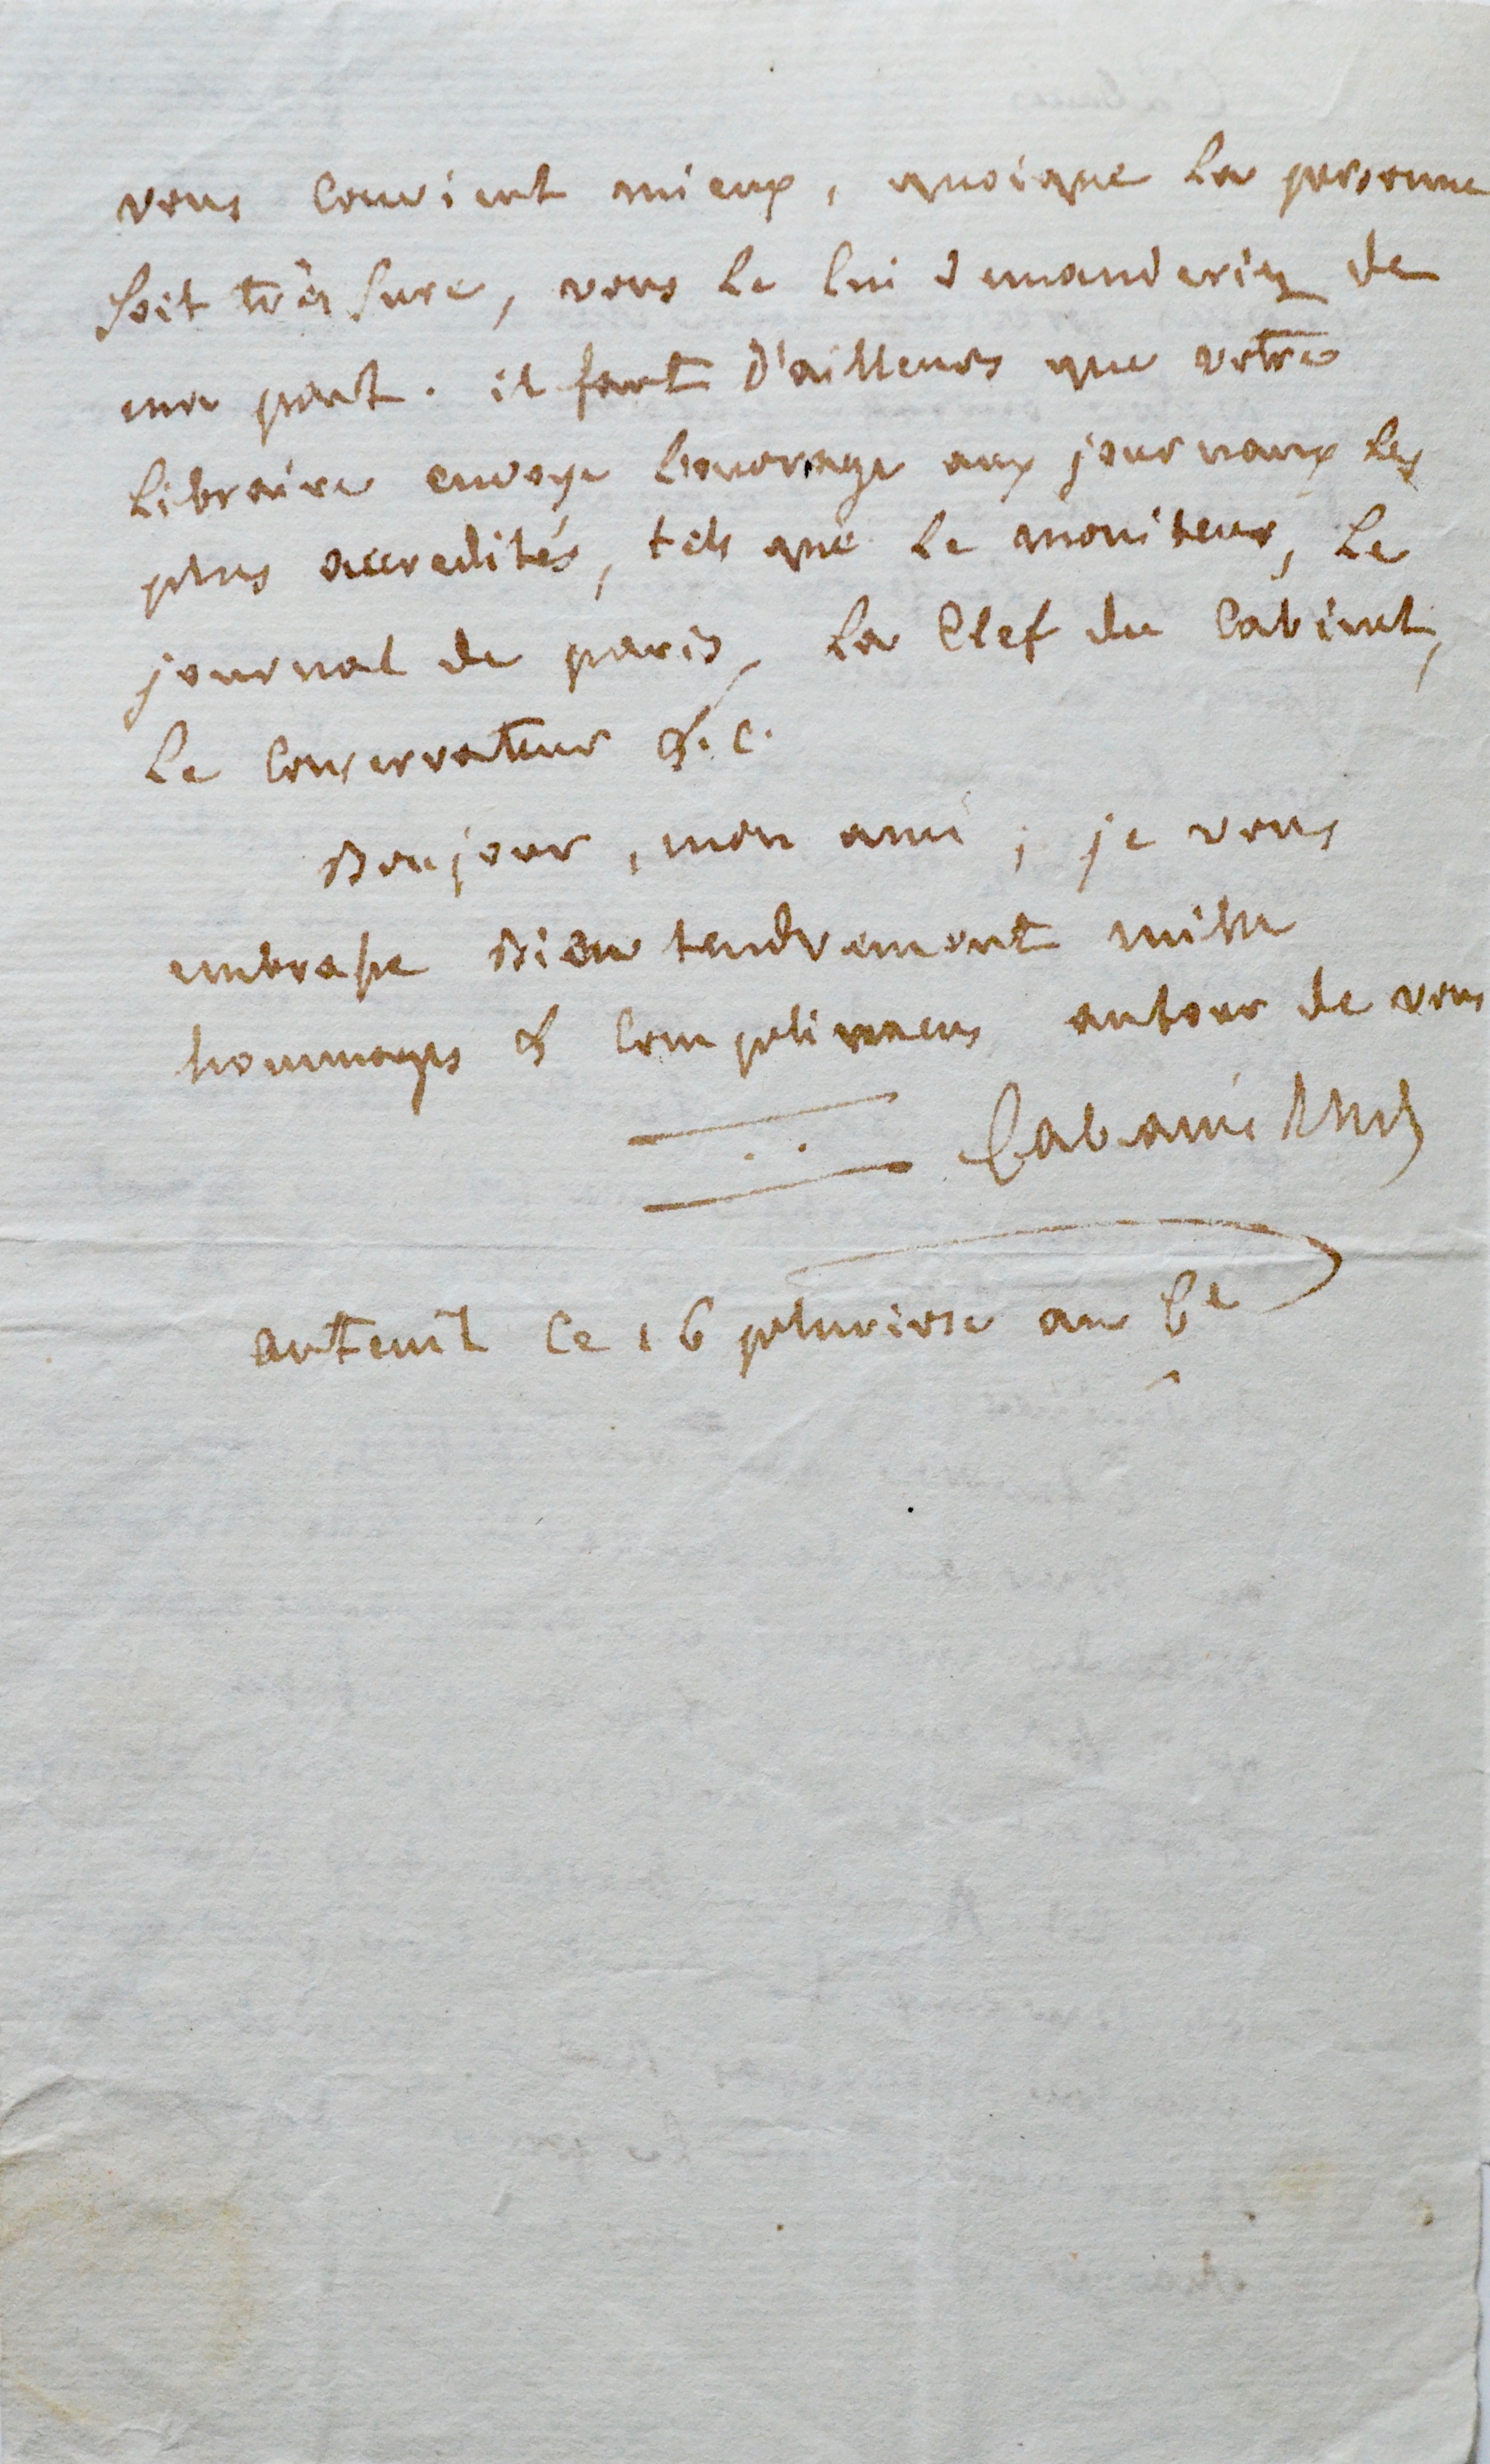 vous convient mieux, quoique la personne
soit très sure, vous le lui demanderiez de
ma part. il faut d'ailleurs que votre
libraire envoye l'ouvrage aux journaux les
plus accredités, tels que le moniteur, le
journal de paris, la Clef du Cabinet,
le Conservateur &.c.
Bonjour, mon ami; je vous
embrasse Bien tendrement mille
hommages & complimens autour de vous
Cabanis
auteuil ce 16 pluviose an 6e